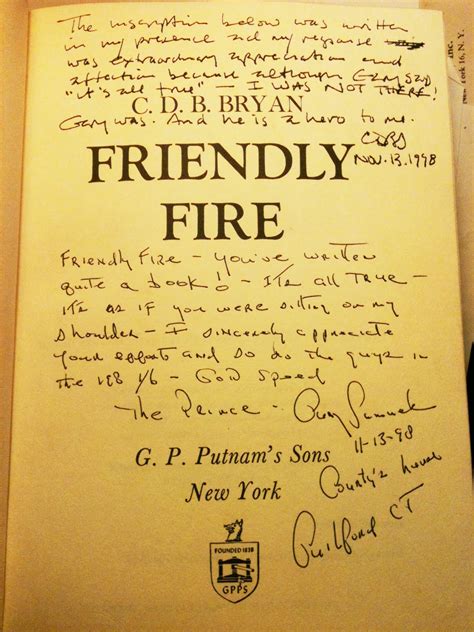 The inscription below was written
in my presence and my response
was extraordinary appreciation and
affection because although Gary says
"it's all true" — I WAS NOT THERE!
C. D. B. BRYAN
Gary was. And he is a hero to me.
CDBB
Nov. 13. 1998
FRIENDLY
FIRE
Friendly Fire — you've written
quite a book! — It's all True —
it's as if you were sitting on my
shoulder — I sincerely appreciate
your efforts and so do the guys in
the 198 1/6 — God Speed
The Prince —
11-13-98
G. P. Putnam's Sons
New York
house
Guilford CT
FOUNDED 1838
GPPS
York 16, N. Y.